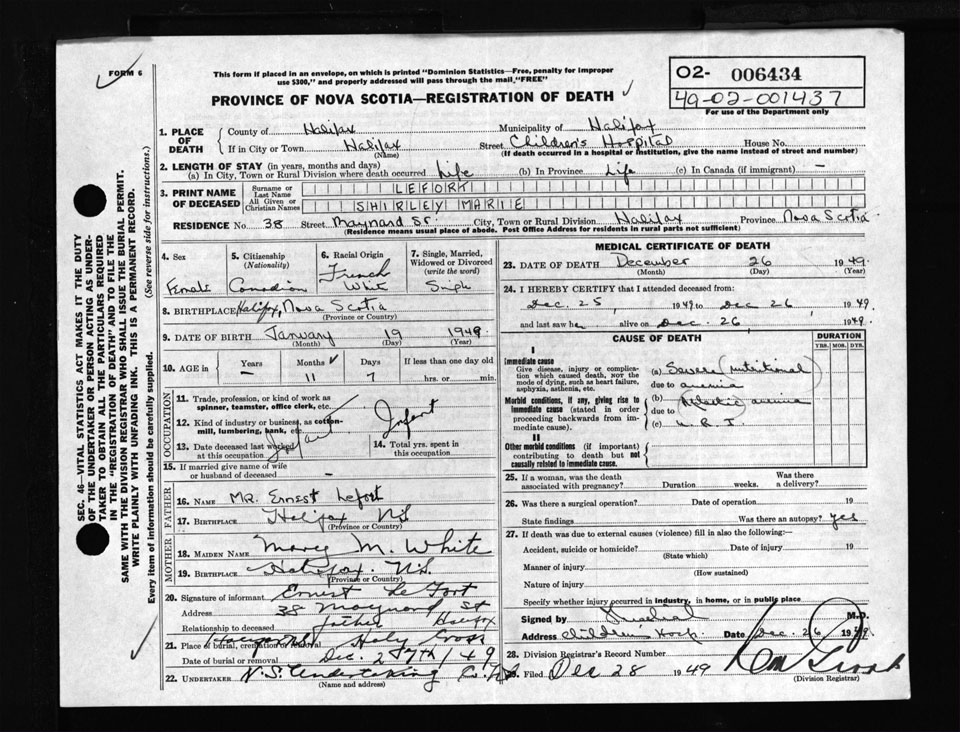 FORM 6
This form if placed in an envelope, on which is printed "Dominion Statistics—Free, penalty for improper
use $300," and properly addressed will pass through the mail, "FREE"
PROVINCE OF NOVA SCOTIA—REGISTRATION OF DEATH
O2- 006434
49-02-001437
For use of the Department only
1. PLACE OF DEATH
County of Halifax Municipality of Halifax
If in City or Town Halifax Street Children's Hospital House No.
(Name) (If death occurred in a hospital or institution, give the name instead of street and number)
2. LENGTH OF STAY (in years, months and days)
(a) In City, Town or Rural Division where death occurred Life (b) In Province Life (c) In Canada (if immigrant) —
3. PRINT NAME OF DECEASED
Surname or Last Name LEFORT
All Given or Christian Names SHIRLEY MARIE
RESIDENCE No. 38 Street Maynard St. City, Town or Rural Division Halifax Province Nova Scotia
(Residence means usual place of abode. Post Office Address for residents in rural parts not sufficient)
4. Sex
Female
5. Citizenship
(Nationality)
Canadian
6. Racial Origin
French
White
7. Single, Married,
Widowed or Divorced
(write the word)
Single
8. BIRTHPLACE Halifax, Nova Scotia
(Province or Country)
9. DATE OF BIRTH January 19 1949
(Month) (Day) (Year)
10. AGE in Years Months Days If less than one day old
— 11 7 hrs. or min.
OCCUPATION
11. Trade, profession, or kind of work as
spinner, teamster, office clerk, etc.
Infant
12. Kind of industry or business, as cotton-
mill, lumbering, bank, etc.
13. Date deceased last worked
at this occupation Infant
14. Total yrs. spent in
this occupation
15. If married give name of wife
or husband of deceased —
FATHER
16. NAME Mr. Ernest Lefort
17. BIRTHPLACE Halifax NS
(Province or Country)
MOTHER
18. MAIDEN NAME Mary M. White
19. BIRTHPLACE Halifax. N.S.
(Province or Country)
20. Signature of informant Ernest Le Fort
Address 38 Maynard St
Relationship to deceased father Halifax
21. Place of burial, cremation or removal Halifax N.S. Holy Cross
Date of burial or removal Dec. 27th/49
22. UNDERTAKER N.S. Undertaking Co.
(Name and address)
MEDICAL CERTIFICATE OF DEATH
23. DATE OF DEATH December 26 1949
(Month) (Day) (Year)
24. I HEREBY CERTIFY that I attended deceased from:
Dec. 25 1949 to Dec 26 1949
and last saw he alive on Dec. 26 1949.
CAUSE OF DEATH
DURATION
YRS. MOS. DYS.
I
Immediate cause
Give disease, injury or complica-
tion which caused death, NOT the
mode of dying, such as heart failure,
asphyxia, asthenia, etc.
(a) Severe (nutritional)
due to anemia
Morbid conditions, if any, giving rise to
immediate cause (stated in order
proceeding backwards from im-
mediate cause).
(b) Aplastic anemia
due to
(c) U.R.I.
II
Other morbid conditions (if important)
contributing to death but not
causally related to immediate cause.
25. If a woman, was the death
associated with pregnancy? Duration weeks. Was there
a delivery?
26. Was there a surgical operation? Date of operation 19
State findings Was there an autopsy? yes
27. If death was due to external causes (violence) fill in also the following:—
Accident, suicide or homicide? Date of injury 19
(State which)
Manner of injury
(How sustained)
Nature of injury
Specify whether injury occurred in industry, in home, or in public place
Signed by M.D.
Address Children's Hosp. Date Dec. 26 1949
28. Division Registrar's Record Number
29. Filed Dec 28 1949
(Division Registrar)
SEC. 46—VITAL STATISTICS ACT MAKES IT THE DUTY
OF THE UNDERTAKER OR PERSON ACTING AS UNDER-
TAKER TO OBTAIN ALL THE PARTICULARS REQUIRED
IN THE "REGISTRATION OF DEATH" AND TO FILE THE
SAME WITH THE DIVISION REGISTRAR WHO SHALL ISSUE THE BURIAL PERMIT.
WRITE PLAINLY WITH UNFADING INK. THIS IS A PERMANENT RECORD.
Every item of information should be carefully supplied. (See reverse side for instructions.)